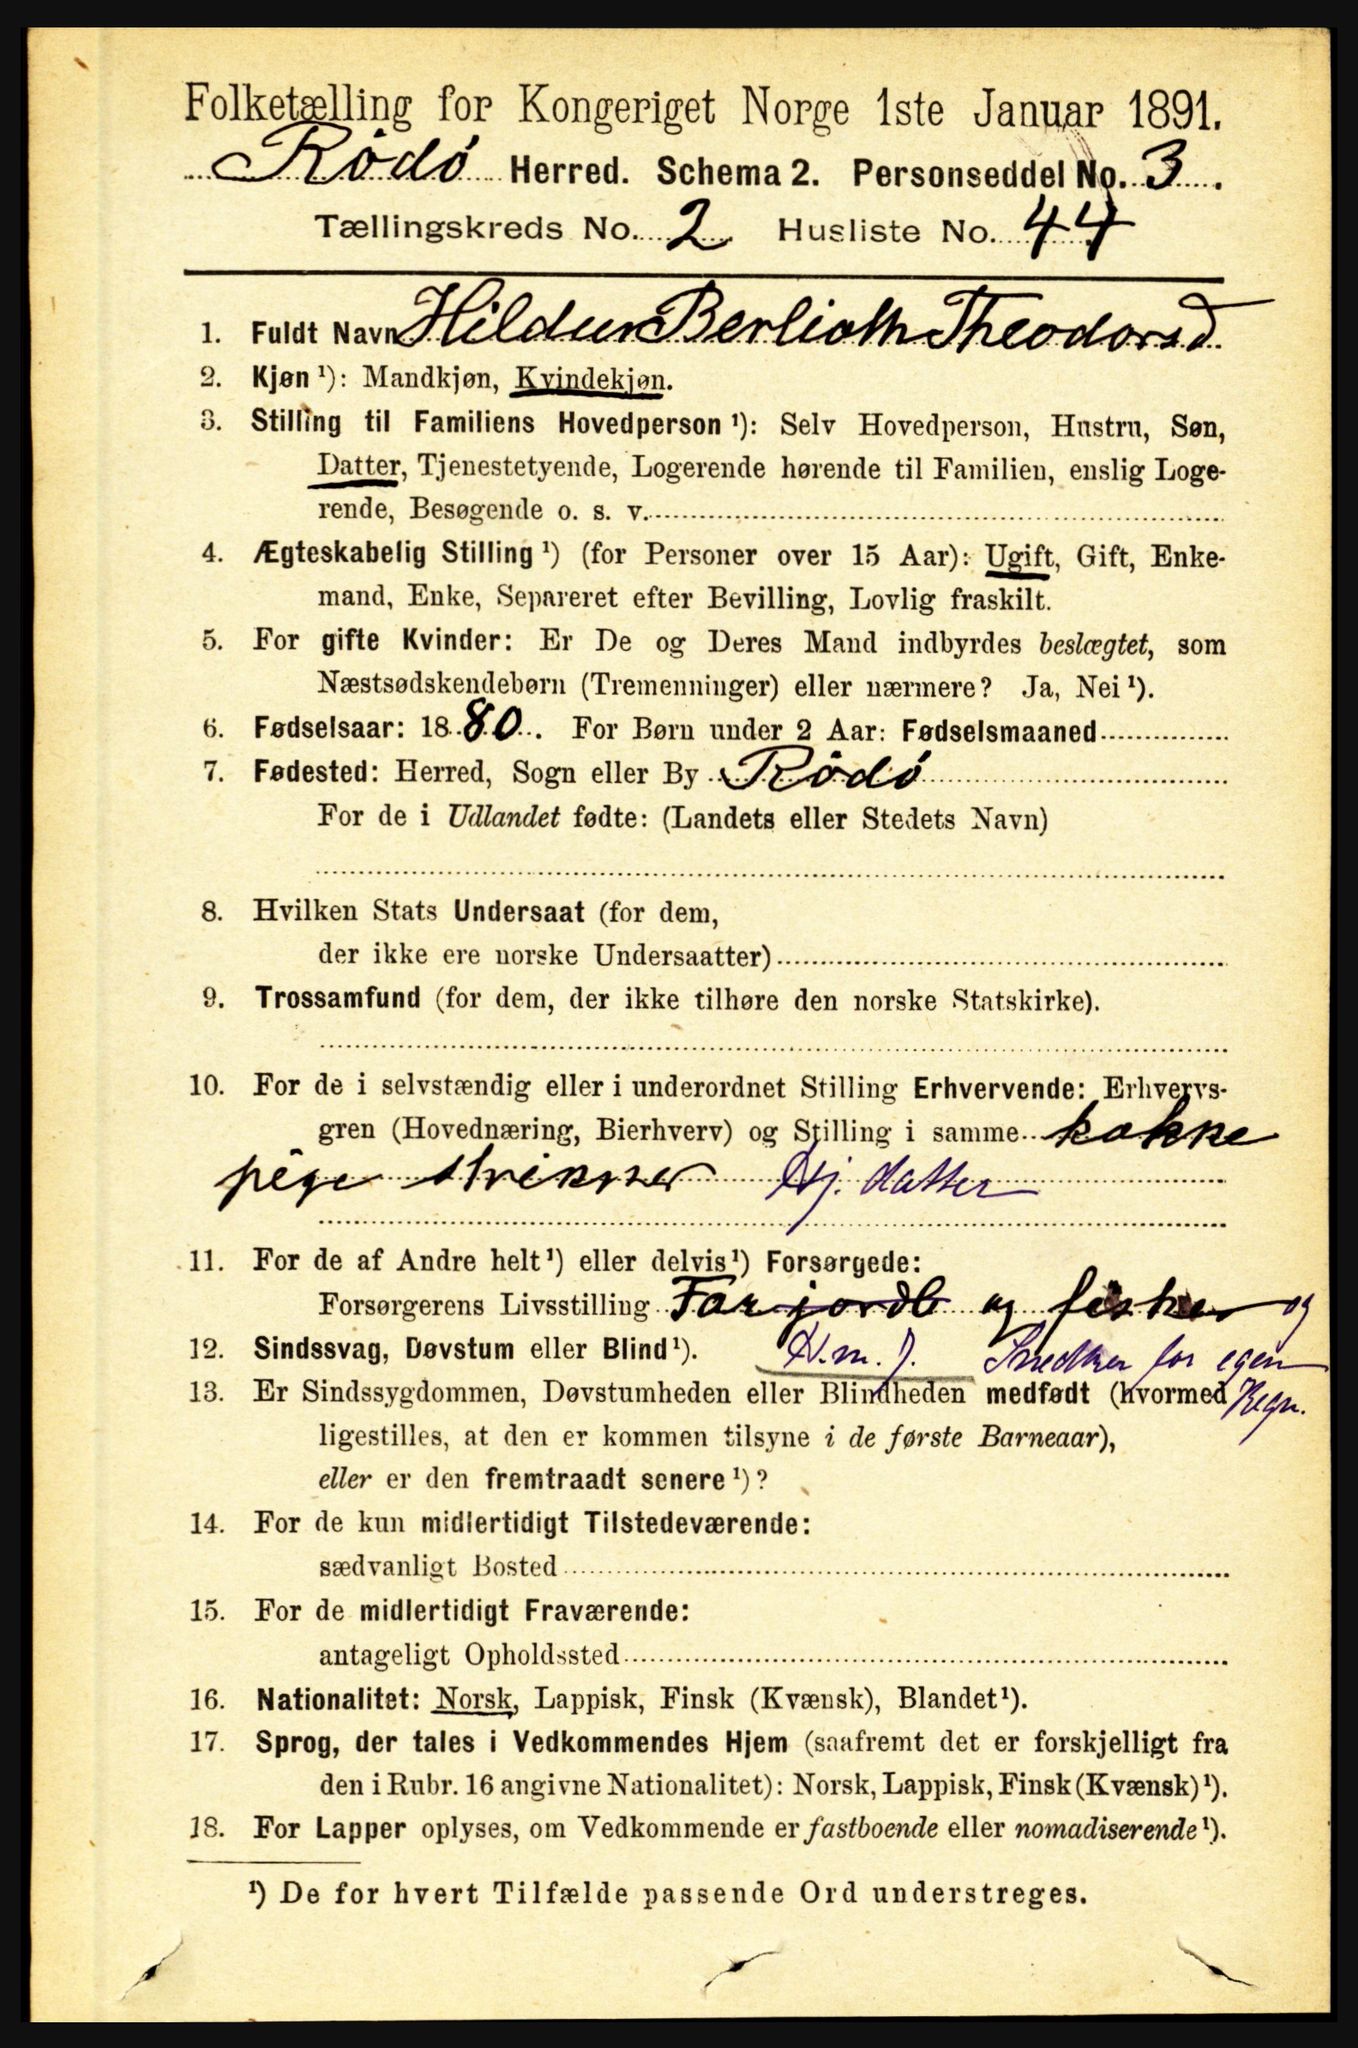 Folketælling for Kongeriget Norge 1ste Januar 1891.
Rödö Herred. Schema 2. Personseddel No. 3.
Tællingskreds No. 2 Husliste No. 44
1. Fuldt Navn Hildur Berlioth Theodorsd.
2. Kjøn ¹): Mandkjøn, Kvindekjøn.
3. Stilling til Familiens Hovedperson ¹): Selv Hovedperson, Hustru, Søn,
Datter, Tjenestetyende, Logerende hørende til Familien, enslig Loge-
rende, Besøgende o. s. v.
4. Ægteskabelig Stilling ¹) (for Personer over 15 Aar): Ugift, Gift, Enke-
mand, Enke, Separeret efter Bevilling, Lovlig fraskilt.
5. For gifte Kvinder: Er De og Deres Mand indbyrdes beslægtet, som
Næstsødskendebørn (Tremenninger) eller nærmere? Ja, Nei ¹).
6. Fødselsaar: 1880. For Børn under 2 Aar: Fødselsmaaned
7. Fødested: Herred, Sogn eller By Rödö
For de i Udlandet fødte: (Landets eller Stedets Navn)
8. Hvilken Stats Undersaat (for dem,
der ikke ere norske Undersaatter)
9. Trossamfund (for dem, der ikke tilhøre den norske Statskirke).
10. For de i selvstændig eller i underordnet Stilling Erhvervende: Erhvervs-
gren (Hovednæring, Bierhverv) og Stilling i samme kokke
pige Hj. datter
11. For de af Andre helt ¹) eller delvis ¹) Forsørgede:
Forsørgerens Livsstilling Far jordb og fisker og
12. Sindssvag, Døvstum eller Blind ¹). H. m. J. Snedker for egen
13. Er Sindssygdommen, Døvstumheden eller Blindheden medfødt (hvormed Regn.
ligestilles, at den er kommen tilsyne i de første Barneaar),
eller er den fremtraadt senere ¹)?
14. For de kun midlertidigt Tilstedeværende:
sædvanligt Bosted
15. For de midlertidigt Fraværende:
antageligt Opholdssted
16. Nationalitet: Norsk, Lappisk, Finsk (Kvænsk), Blandet ¹).
17. Sprog, der tales i Vedkommendes Hjem (saafremt det er forskjelligt fra
den i Rubr. 16 angivne Nationalitet): Norsk, Lappisk, Finsk (Kvænsk) ¹).
18. For Lapper oplyses, om Vedkommende er fastboende eller nomadiserende ¹).
¹) De for hvert Tilfælde passende Ord understreges.